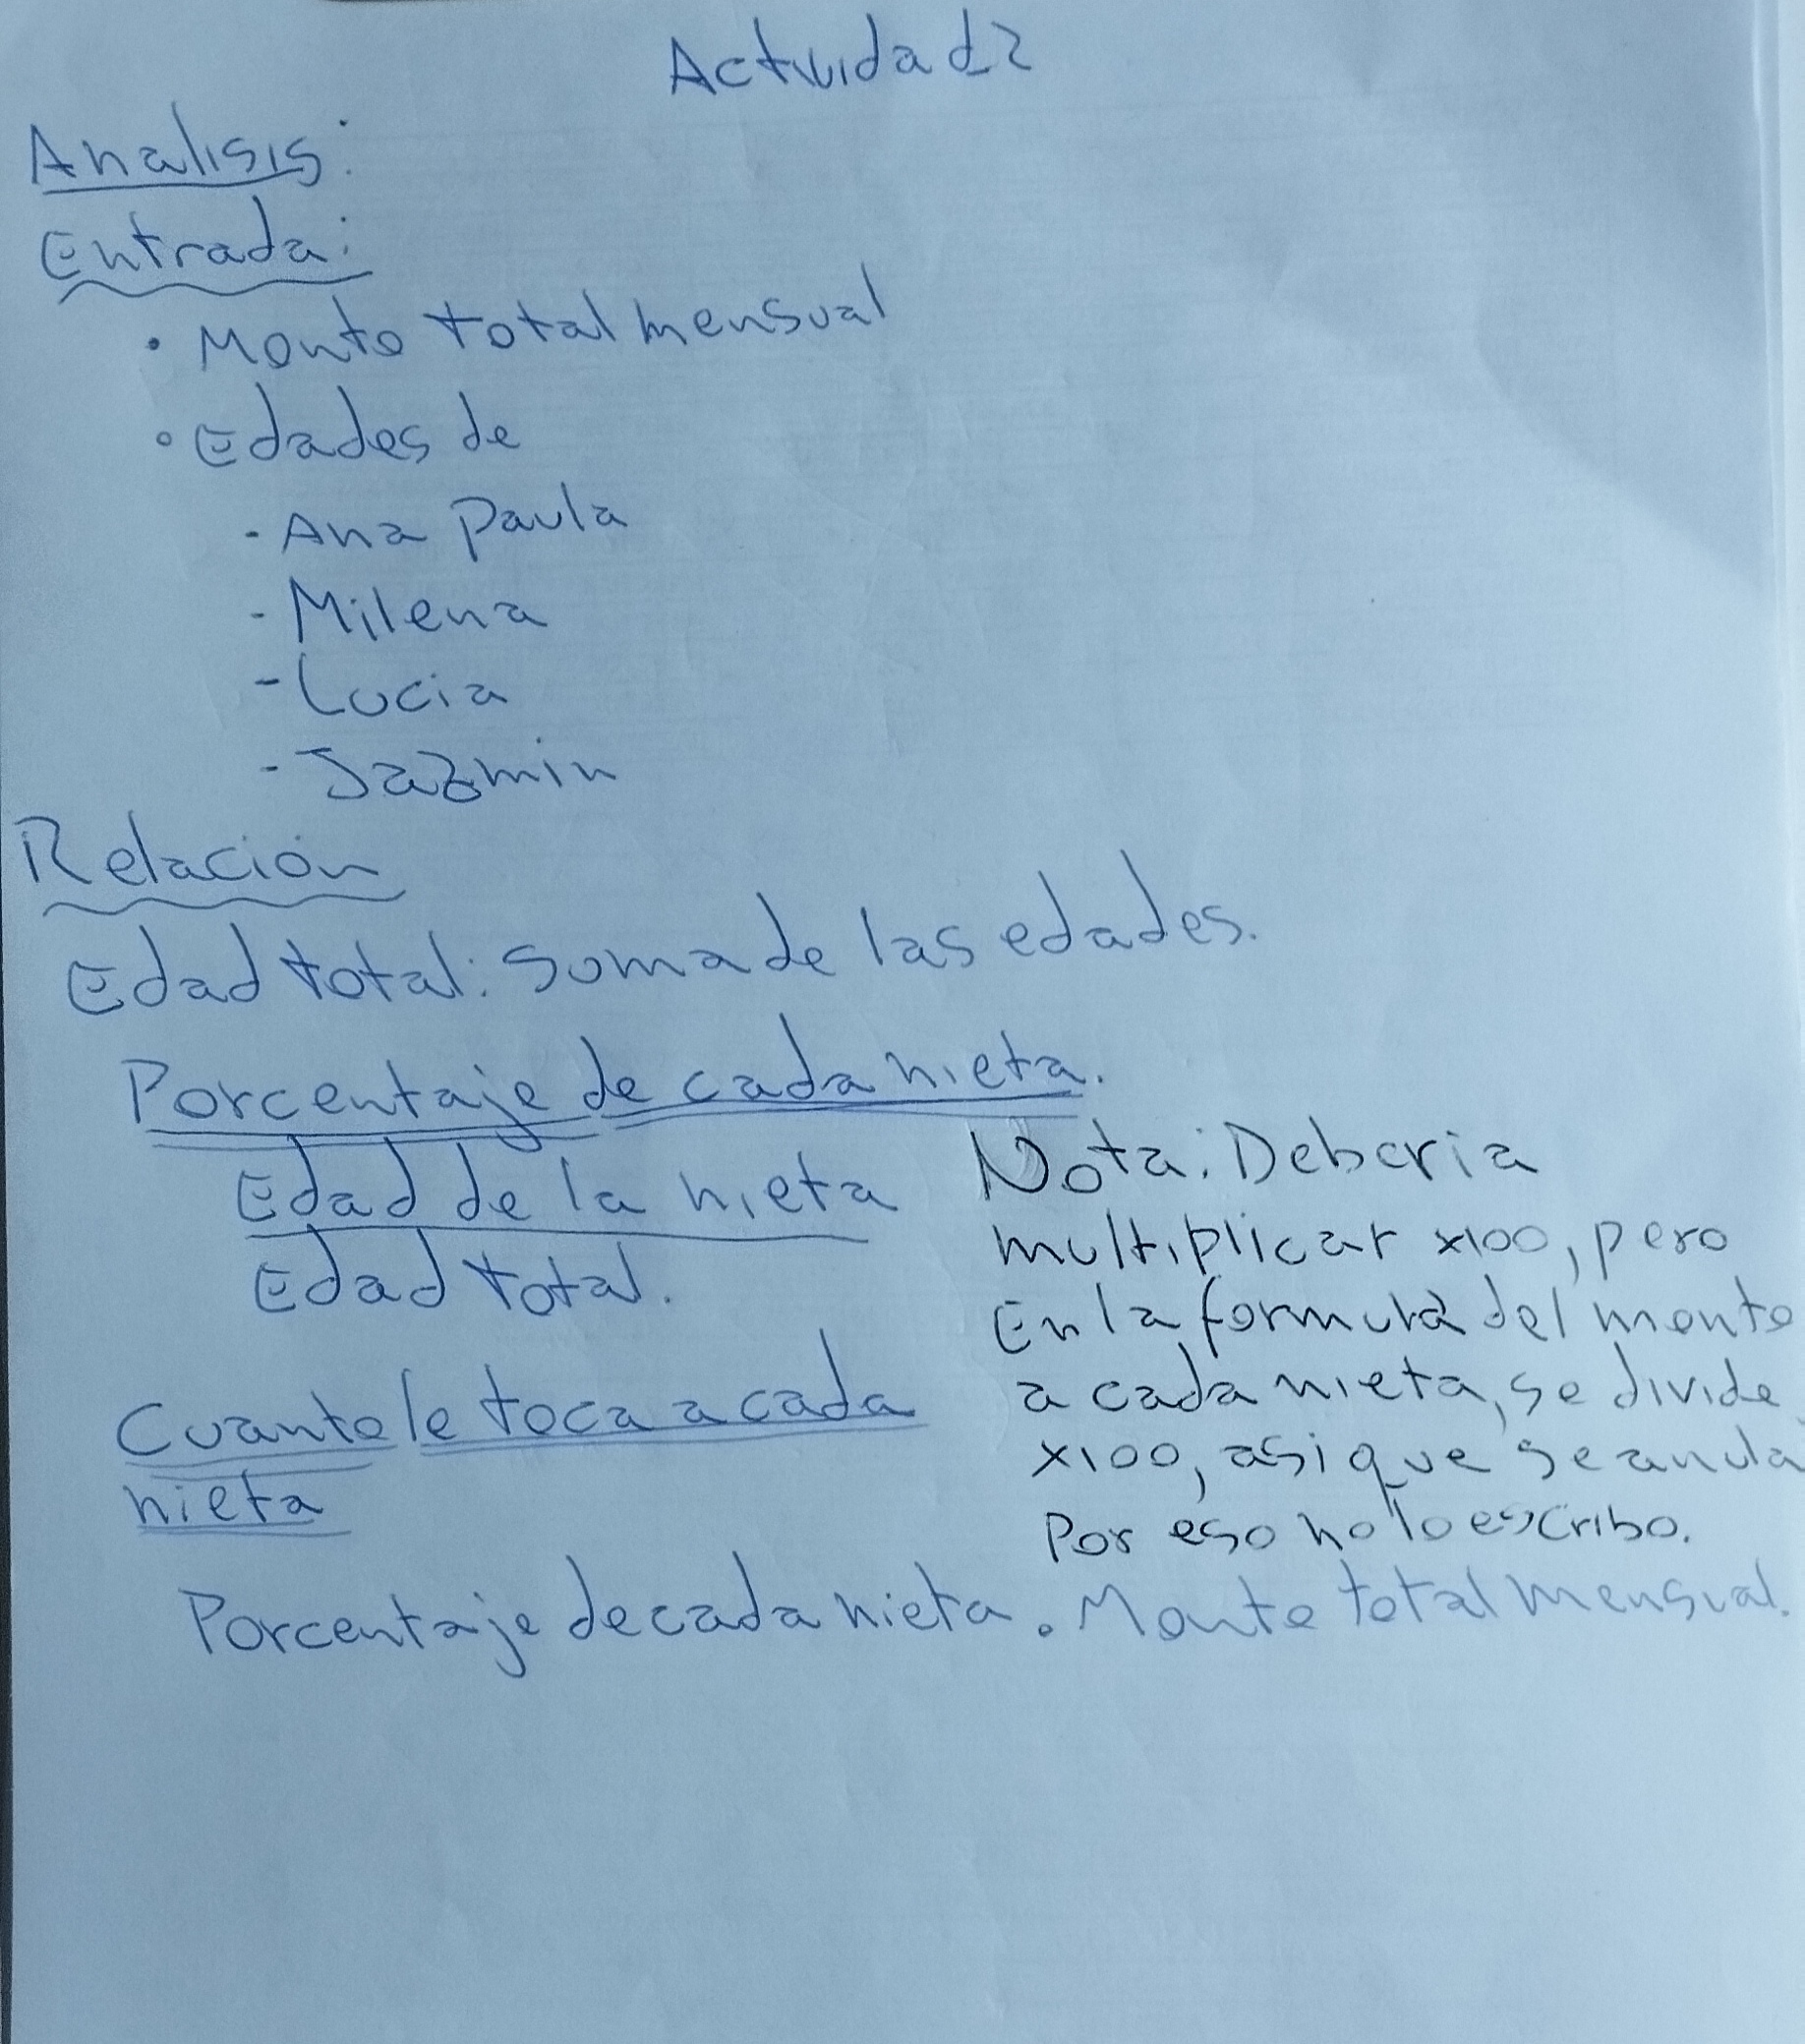 Actividad 2
Analisis:
Entrada:
• Monto total mensual
• Edades de
- Ana Paula
- Milena
- Lucia
- Jazmin
Relación
Edad total: Suma de las edades.
Porcentaje de cada nieta.
Edad de la nieta
Edad total.
Nota: Deberia
multiplicar x100, pero
En la formula del monto
a cada nieta, se divide
x100, asi que se anula
Por eso no lo escribo.
Cuanto le toca a cada
nieta
Porcentaje de cada nieta . Monto total mensual.